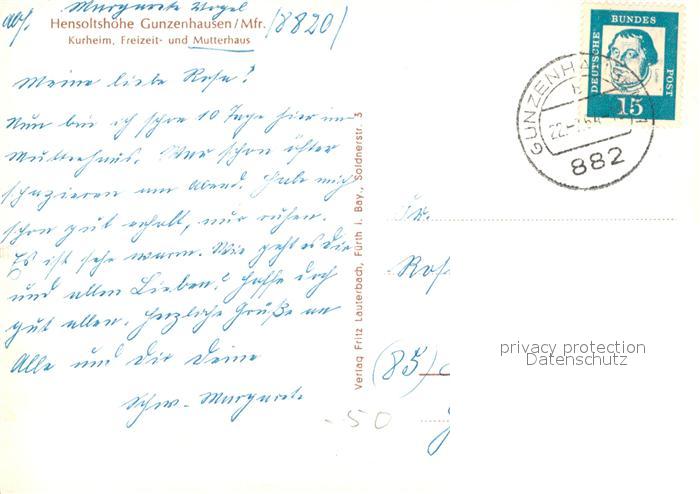 Abs. Margarete Vogel
Hensoltshöhe Gunzenhausen/Mfr. (8820)
Kurheim, Freizeit- und Mutterhaus
Meine liebe Rosa!
Nun bin ich schon 10 Tage hier im
Mutterhaus. War schon öfter
spazieren am Abend. Habe mich
schon gut erholt, nur ruhen.
Es ist sehr warm. Wie geht es Dir
und allen Lieben? Hoffe doch
gut allen. Herzliche Grüße an
Alle und Dir Deine
Schw. Margarete
Verlag Fritz Lauterbach, Fürth i. Bay., Soldnerstr. 3
DEUTSCHE BUNDES POST
15
GUNZENHAUSEN
882
Fr.
Ros
(85)
-50
privacy protection
Datenschutz